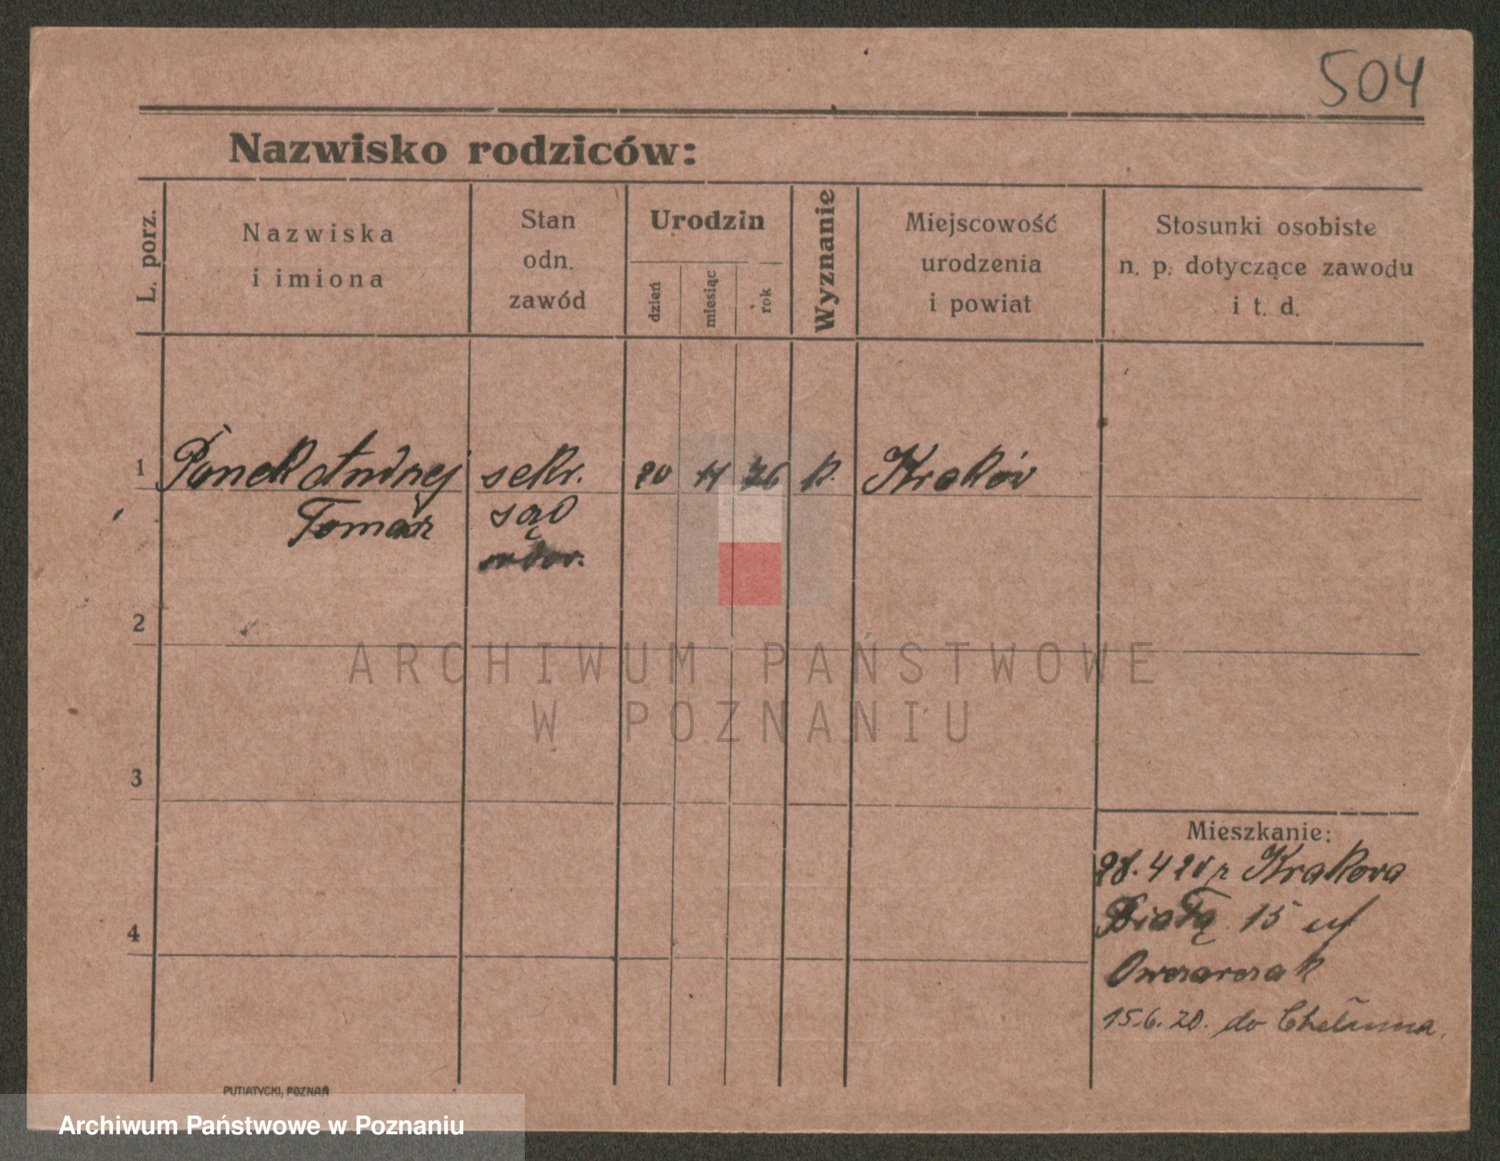 504
Nazwisko rodziców:
L. porz.
Nazwiska
i imiona
Stan
odn.
zawód
Urodzin
dzień
miesiąc
rok
Wyznanie
Miejscowość
urodzenia
i powiat
Stosunki osobiste
n. p. dotyczące zawodu
i t. d.
1 Panek Andrzej sekr. 20 11 76 k. Kraków
Tomasz sąd
2
ARCHIWUM PAŃSTWOWE
W POZNANIU
3
Mieszkanie:
28.4 20 z Krakowa
4
Białą 15 u
Owczarczak
15.6.20. do Chełmna.
PUTIATYCKI, POZNAŃ
Archiwum Państwowe w Poznaniu